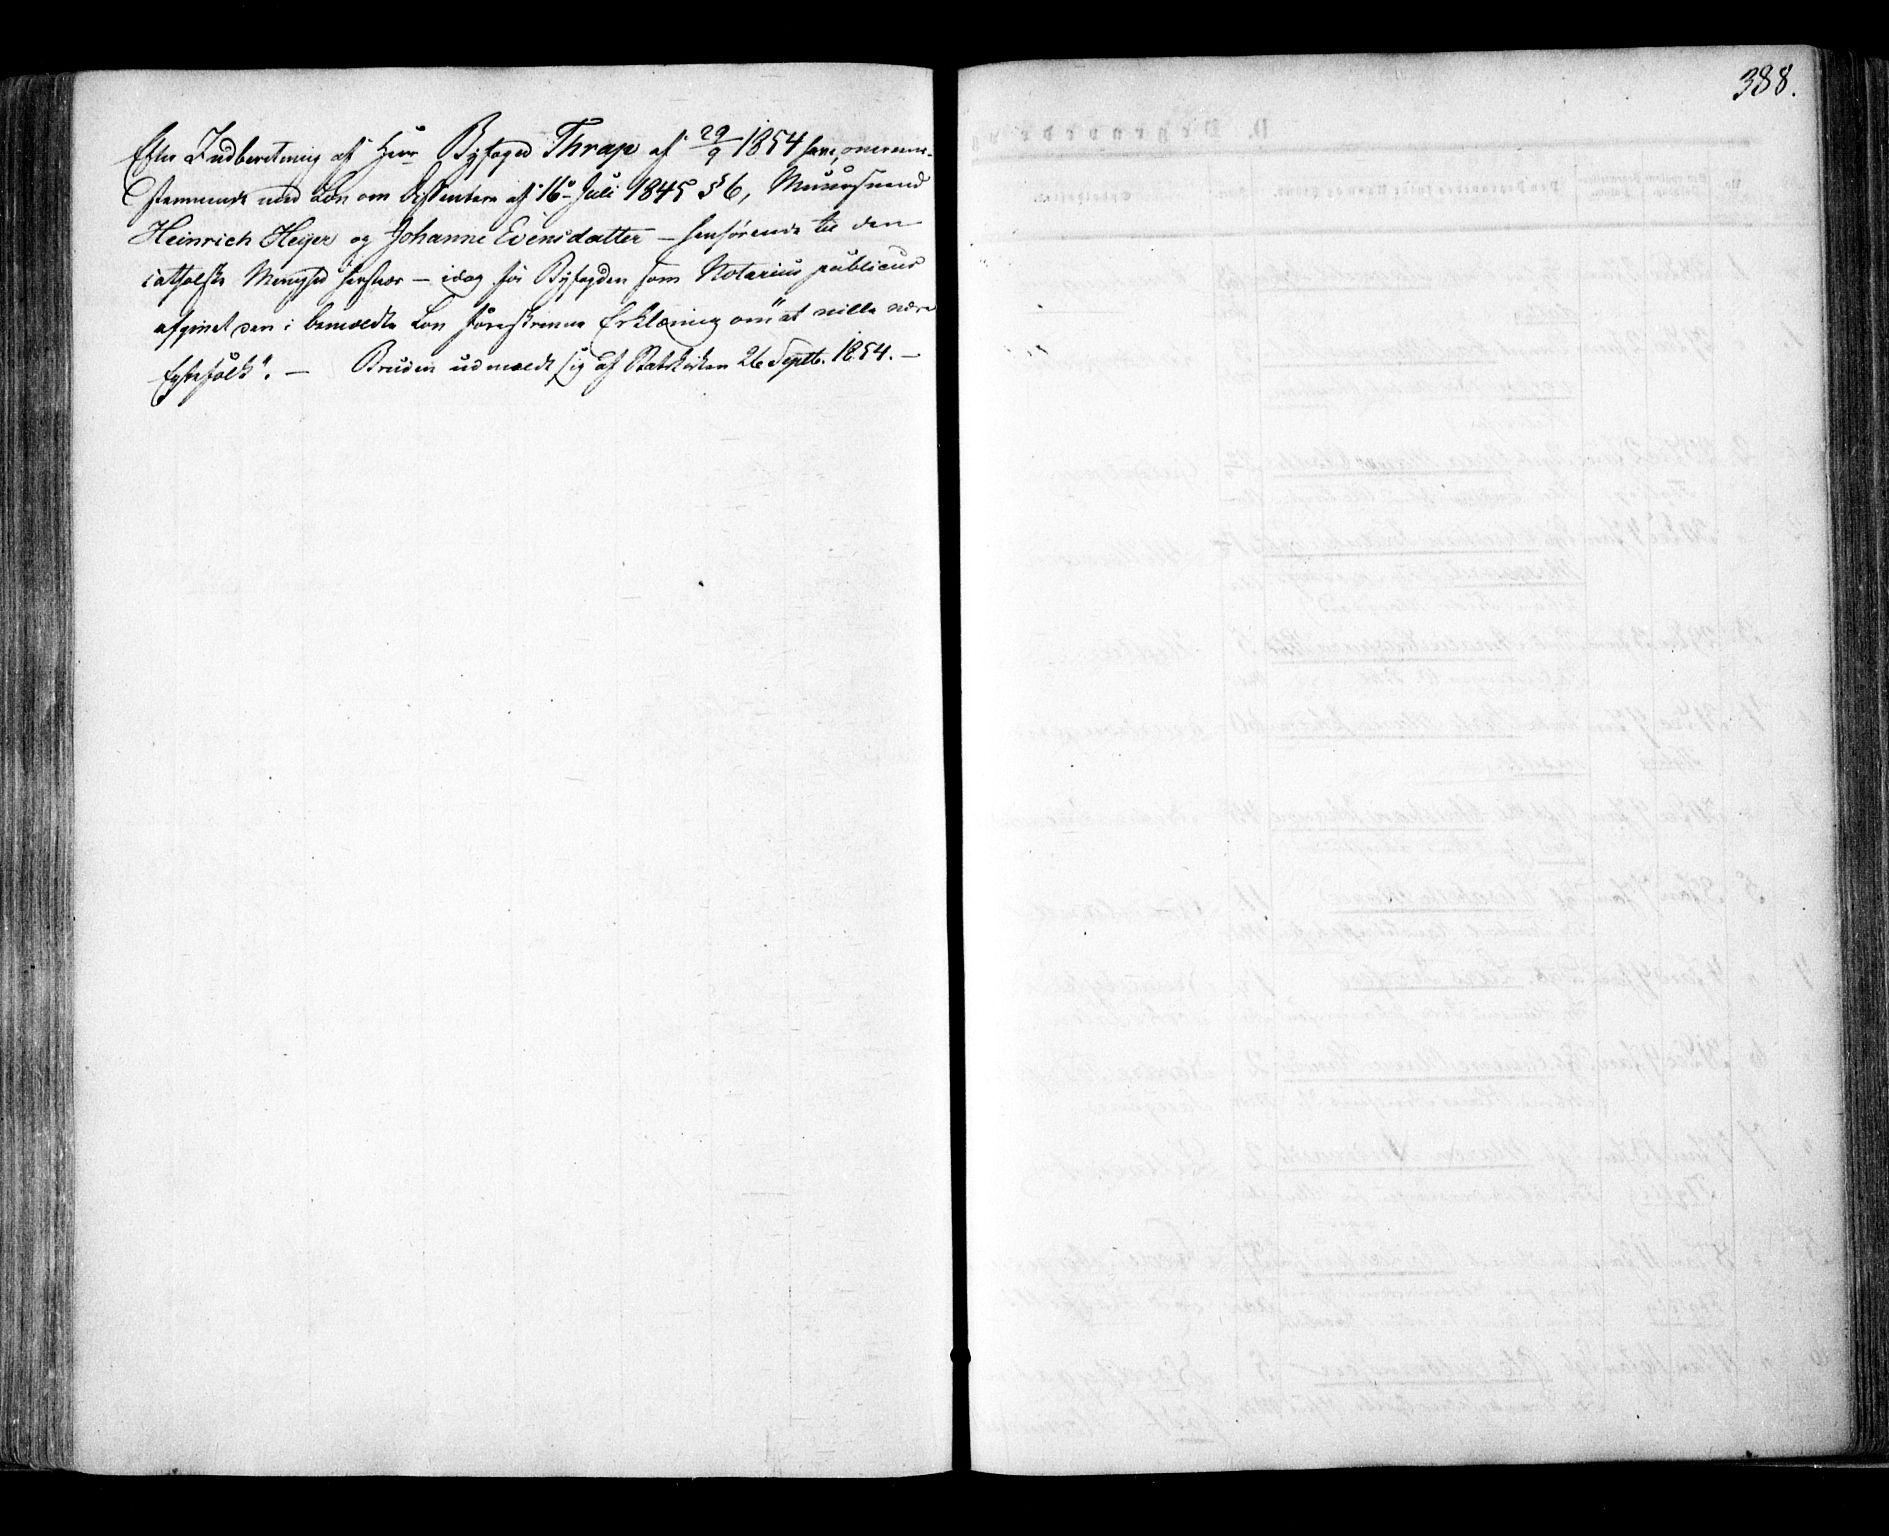 388.
Efter Indberetning af Herr Byfoged Thrap af 29/9 1854 have, overens-
stemmende med Lov om Dissentere af 16de Juli 1845 § 6, Muursvend
Heinrich Heyer og Johanne Evensdatter – henhørende til den
catholske Menighed hersteds – idag for Byfogden som Notarius publicus
afgivet den i bemeldte Lov foreskrevne Erklæring om "at ville være
Egtefolk". – Bruden udmeldt sig af Statskirken 26 Septb. 1854. –